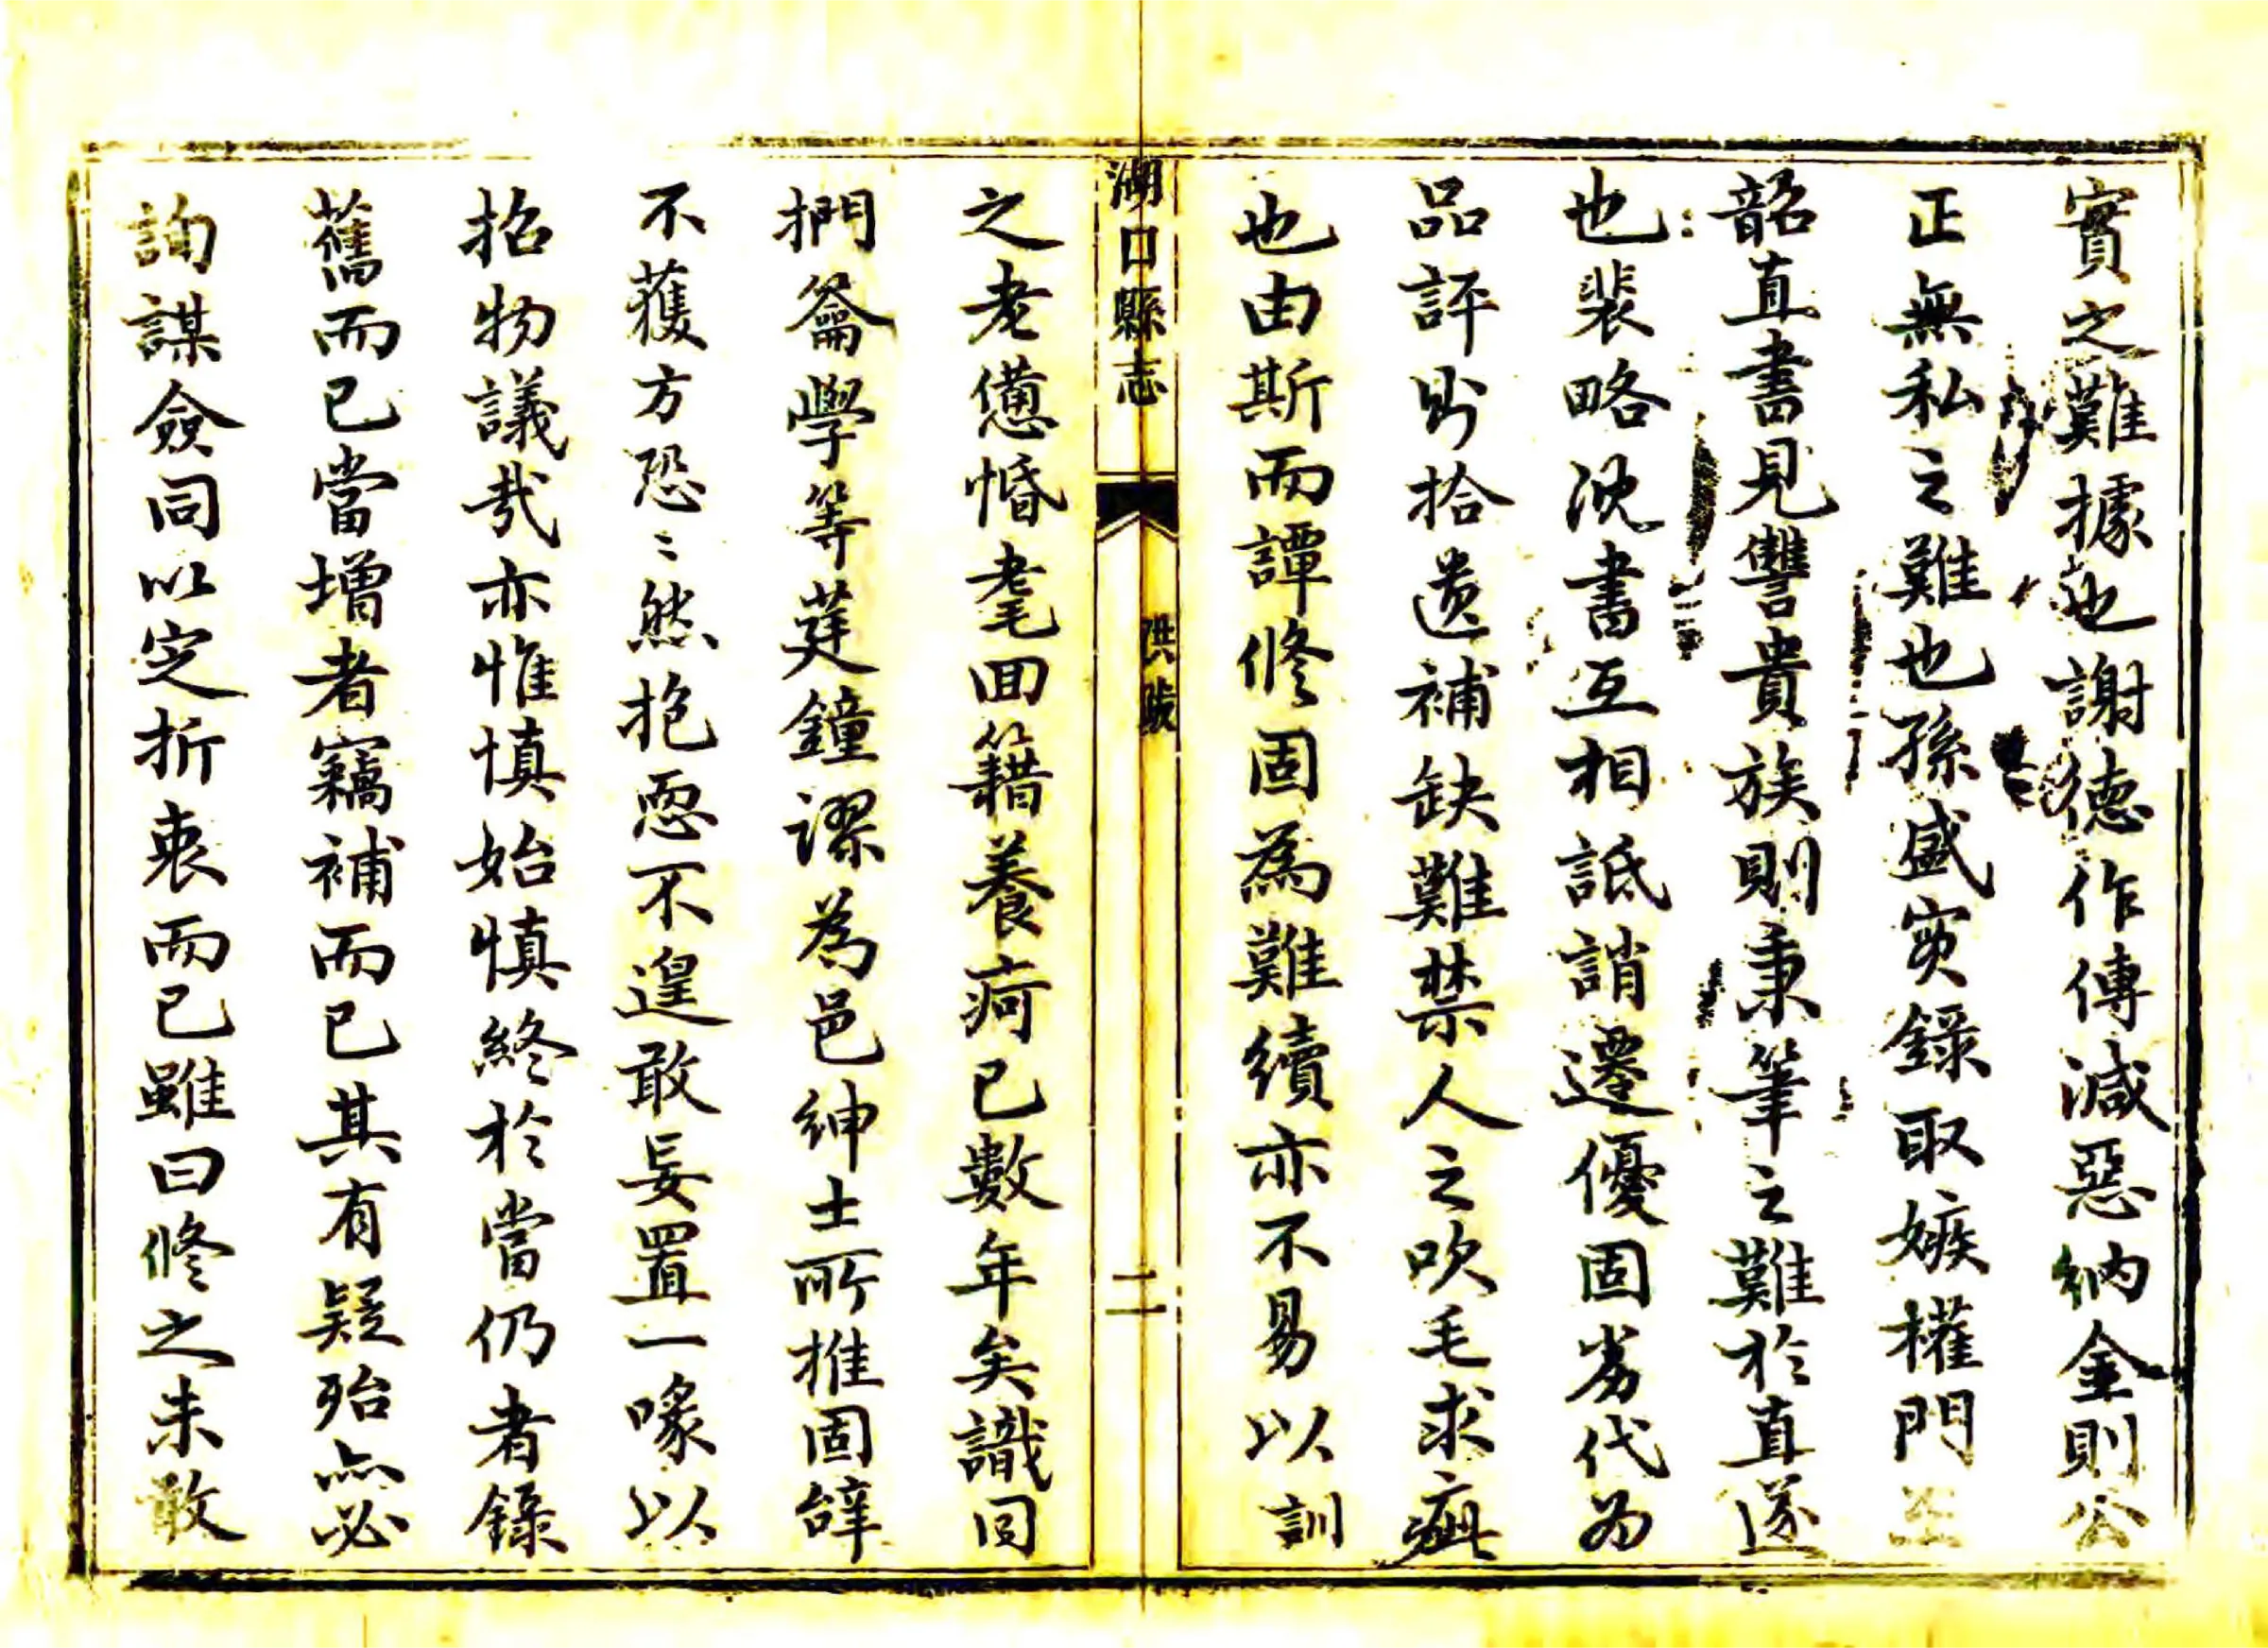 實之難據也謝德作傳減惡納金則公
正無私之難也孫盛實錄取嫉權門王
韶直書見讐貴族則秉筆之難於直遂
也裴略沈書互相詆誚遷優固劣代為
品評則拾遺補缺難禁人之吹毛求疵
也由斯而譚修固為難續亦不易以訓
湖口縣志
洪跋
二
之老憊惛耄回籍養疴已數年矣識同
捫籥學等莛鐘謬為邑紳士所推固辭
不獲方恐〻然抱恧不遑敢妄置一喙以
招物議哉亦惟慎始慎終於當仍者錄
舊而已當增者竊補而已其有疑殆亦必
詢謀僉同以定折衷而已雖曰修之未敢